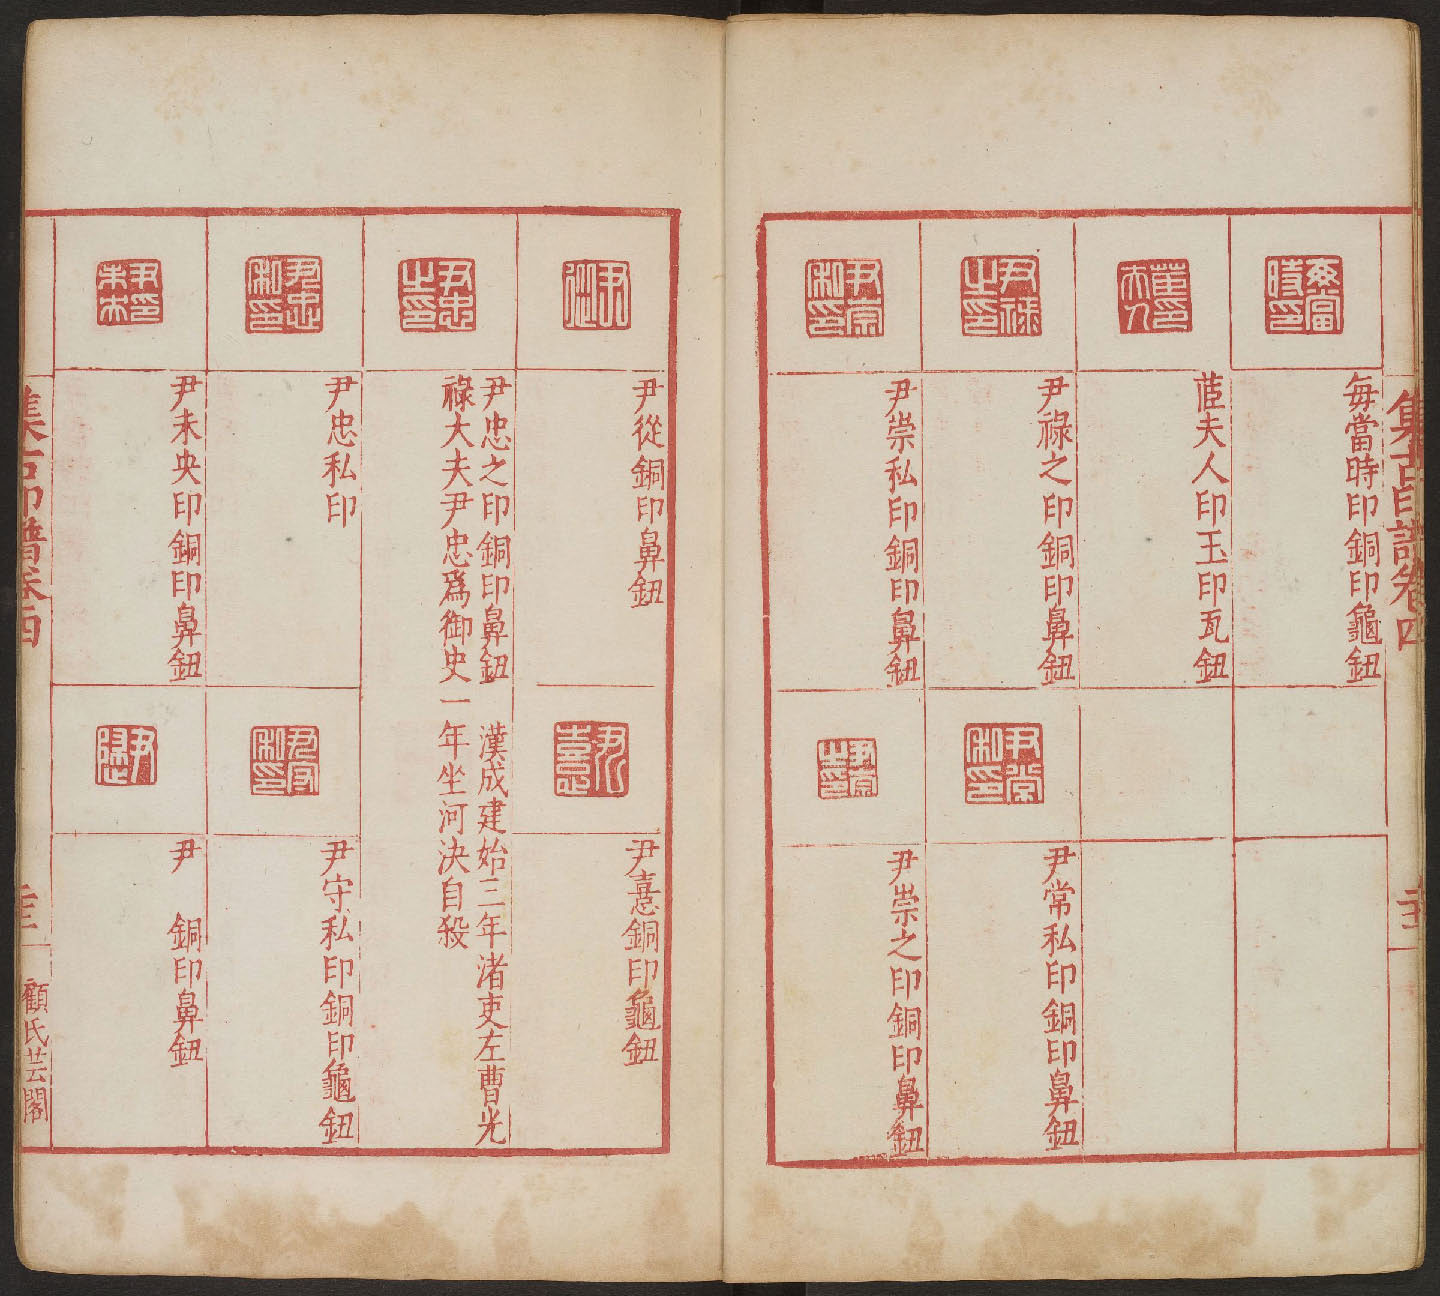 集古印譜卷四
每當時印銅印龜鈕
茝夫人印玉印瓦鈕
尹祿之印銅印鼻鈕
尹常私印銅印鼻鈕
尹崇私印銅印鼻鈕
尹崇之印銅印鼻鈕
尹從銅印鼻鈕
尹憙銅印龜鈕
尹忠之印銅印鼻鈕 漢成建始三年渚吏左曹光
祿大夫尹忠爲御史一年坐河決自殺
尹忠私印
尹守私印銅印龜鈕
尹未央印銅印鼻鈕
尹 銅印鼻鈕
集古印譜卷四
顧氏芸閣